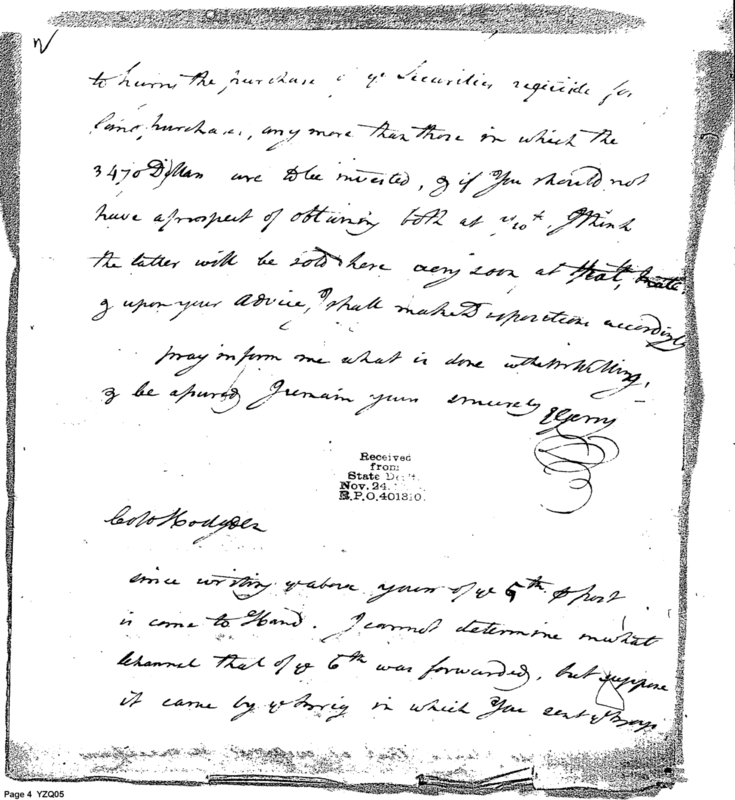 to hurry the purchase of ye Securities requisite for
land purchases, any more than those in which the
3470 Dollars are to be invested, & if You should not
have a prospect of obtaining both at I think
the latter will be sold here very soon at that rate,
& upon your advice, I shall make Dispositions accordingly
pray inform me what is done with
& be assured I remain yours sincerely EGerry
Received
from
State De't.
Nov. 24.
E.P.O.401310.
Colo Hodgdon
since writing ye above yours of ye 5th post
is come to Hand. I cannot determine in what
Channel that of ye 6th was forwarded, but suppose
it came by ye Brig in which You sent ye
Page 4 YZQ05